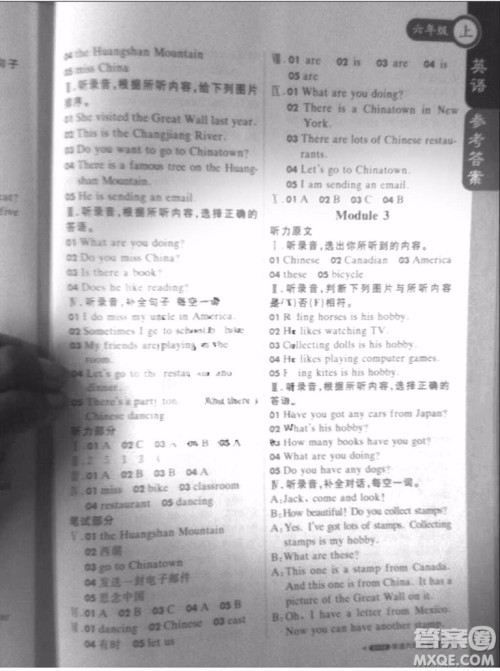 六年级 上
英语 参考答案
04 the Huangshan Mountain
05 miss China
Ⅱ.听录音,根据所听内容,给下列图片
排序。
01 She visited the Great Wall last year.
02 This is the Changjiang River.
03 Do you want to go to Chinatown?
04 There is a famous tree on the Huang-
shan Mountain.
05 He is sending an email.
Ⅲ.听录音,根据所听内容,选择正确的
答语。
01 What are you doing?
02 Do you miss China?
03 Is there a book?
04 Does he like reading?
Ⅳ.听录音,补全句子,每空一
01 I do miss my uncle in America.
02 Sometimes I go to school bike
03 My friends are playing in the
room.
04 Let's go to the and
dinner.
05 There's a party there's
Chinese dancing
听力部分
Ⅰ.01 A 02 C 03 A 04 B 05 B
Ⅲ.01 A 02 B 03 A 04 B
Ⅳ.01 miss 02 bike 03 classroom
04 restaurant 05 dancing
笔试部分
Ⅴ.01 the Huangshan Mountain
02 西湖
03 go to Chinatown
04 发送一封电子邮件
05 思念中国
Ⅵ.01 A 02 B 03 C 04 A 05 B
Ⅶ.01 dancing 02 Chinese 03 east
04 有时 05 let us
Ⅷ.01 are 02 is 03 are 04 is
05 are
Ⅸ.01 What are you doing?
02 There is a Chinatown in New
York.
03 There are lots of Chinese restau-
rants.
04 Let's go to Chinatown.
05 I am sending an email.
Ⅹ.01 C 02 B 03 A 04 B
Module 3
听力原文
Ⅰ.听录音,选出你所听到的内容。
01 Chinese 02 Canadian 03 America
04 these 05 bicycle
Ⅱ.听录音,判断下列图片与所听内容
是(√)否(×)相符。
01 Riding horses is his hobby.
02 He likes watching TV.
03 Collecting dolls is his hobby.
04 He likes playing computer games.
05 Flying kites is his hobby.
Ⅲ.听录音,根据所听内容,选择正确的
答语。
01 Have you got any cars from Japan?
02 What's his hobby?
03 How many books have you got?
04 What are you doing?
05 Do you have any dogs?
Ⅳ.听录音,补全对话,每空一词。
A: Jack, look! Come and look!
B: How beautiful! Do you collect stamps?
A: Yes. I've got lots of stamps. Collecting
stamps is my hobby.
B: What are these?
A: This one is a stamp from Canada.
And this one is from China. It has a
picture of the Great Wall on it.
B: Oh, I have a letter from Mexico.
Now you can have another stamp.
答案圈
MXQE.COM